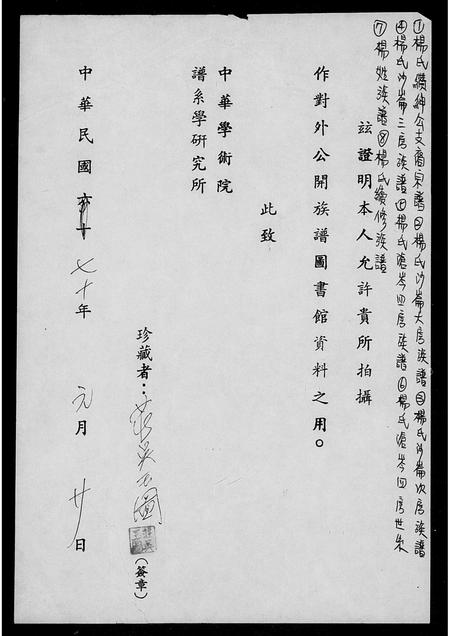 ①楊氏纘紳公支裔宗譜②楊氏沙崙大房族譜③楊氏沙崙次房族譜
④楊氏沙崙三房族譜⑤楊氏滄岑四房族譜⑥楊氏滄岑四房世系
⑦楊姓族譜⑧楊氏續修族譜
茲證明本人允許貴所拍攝
作對外公開族譜圖書館資料之用。
此致
中華學術院
譜系學研究所
珍藏者：
(簽章)
中華民國七十年元月廿日